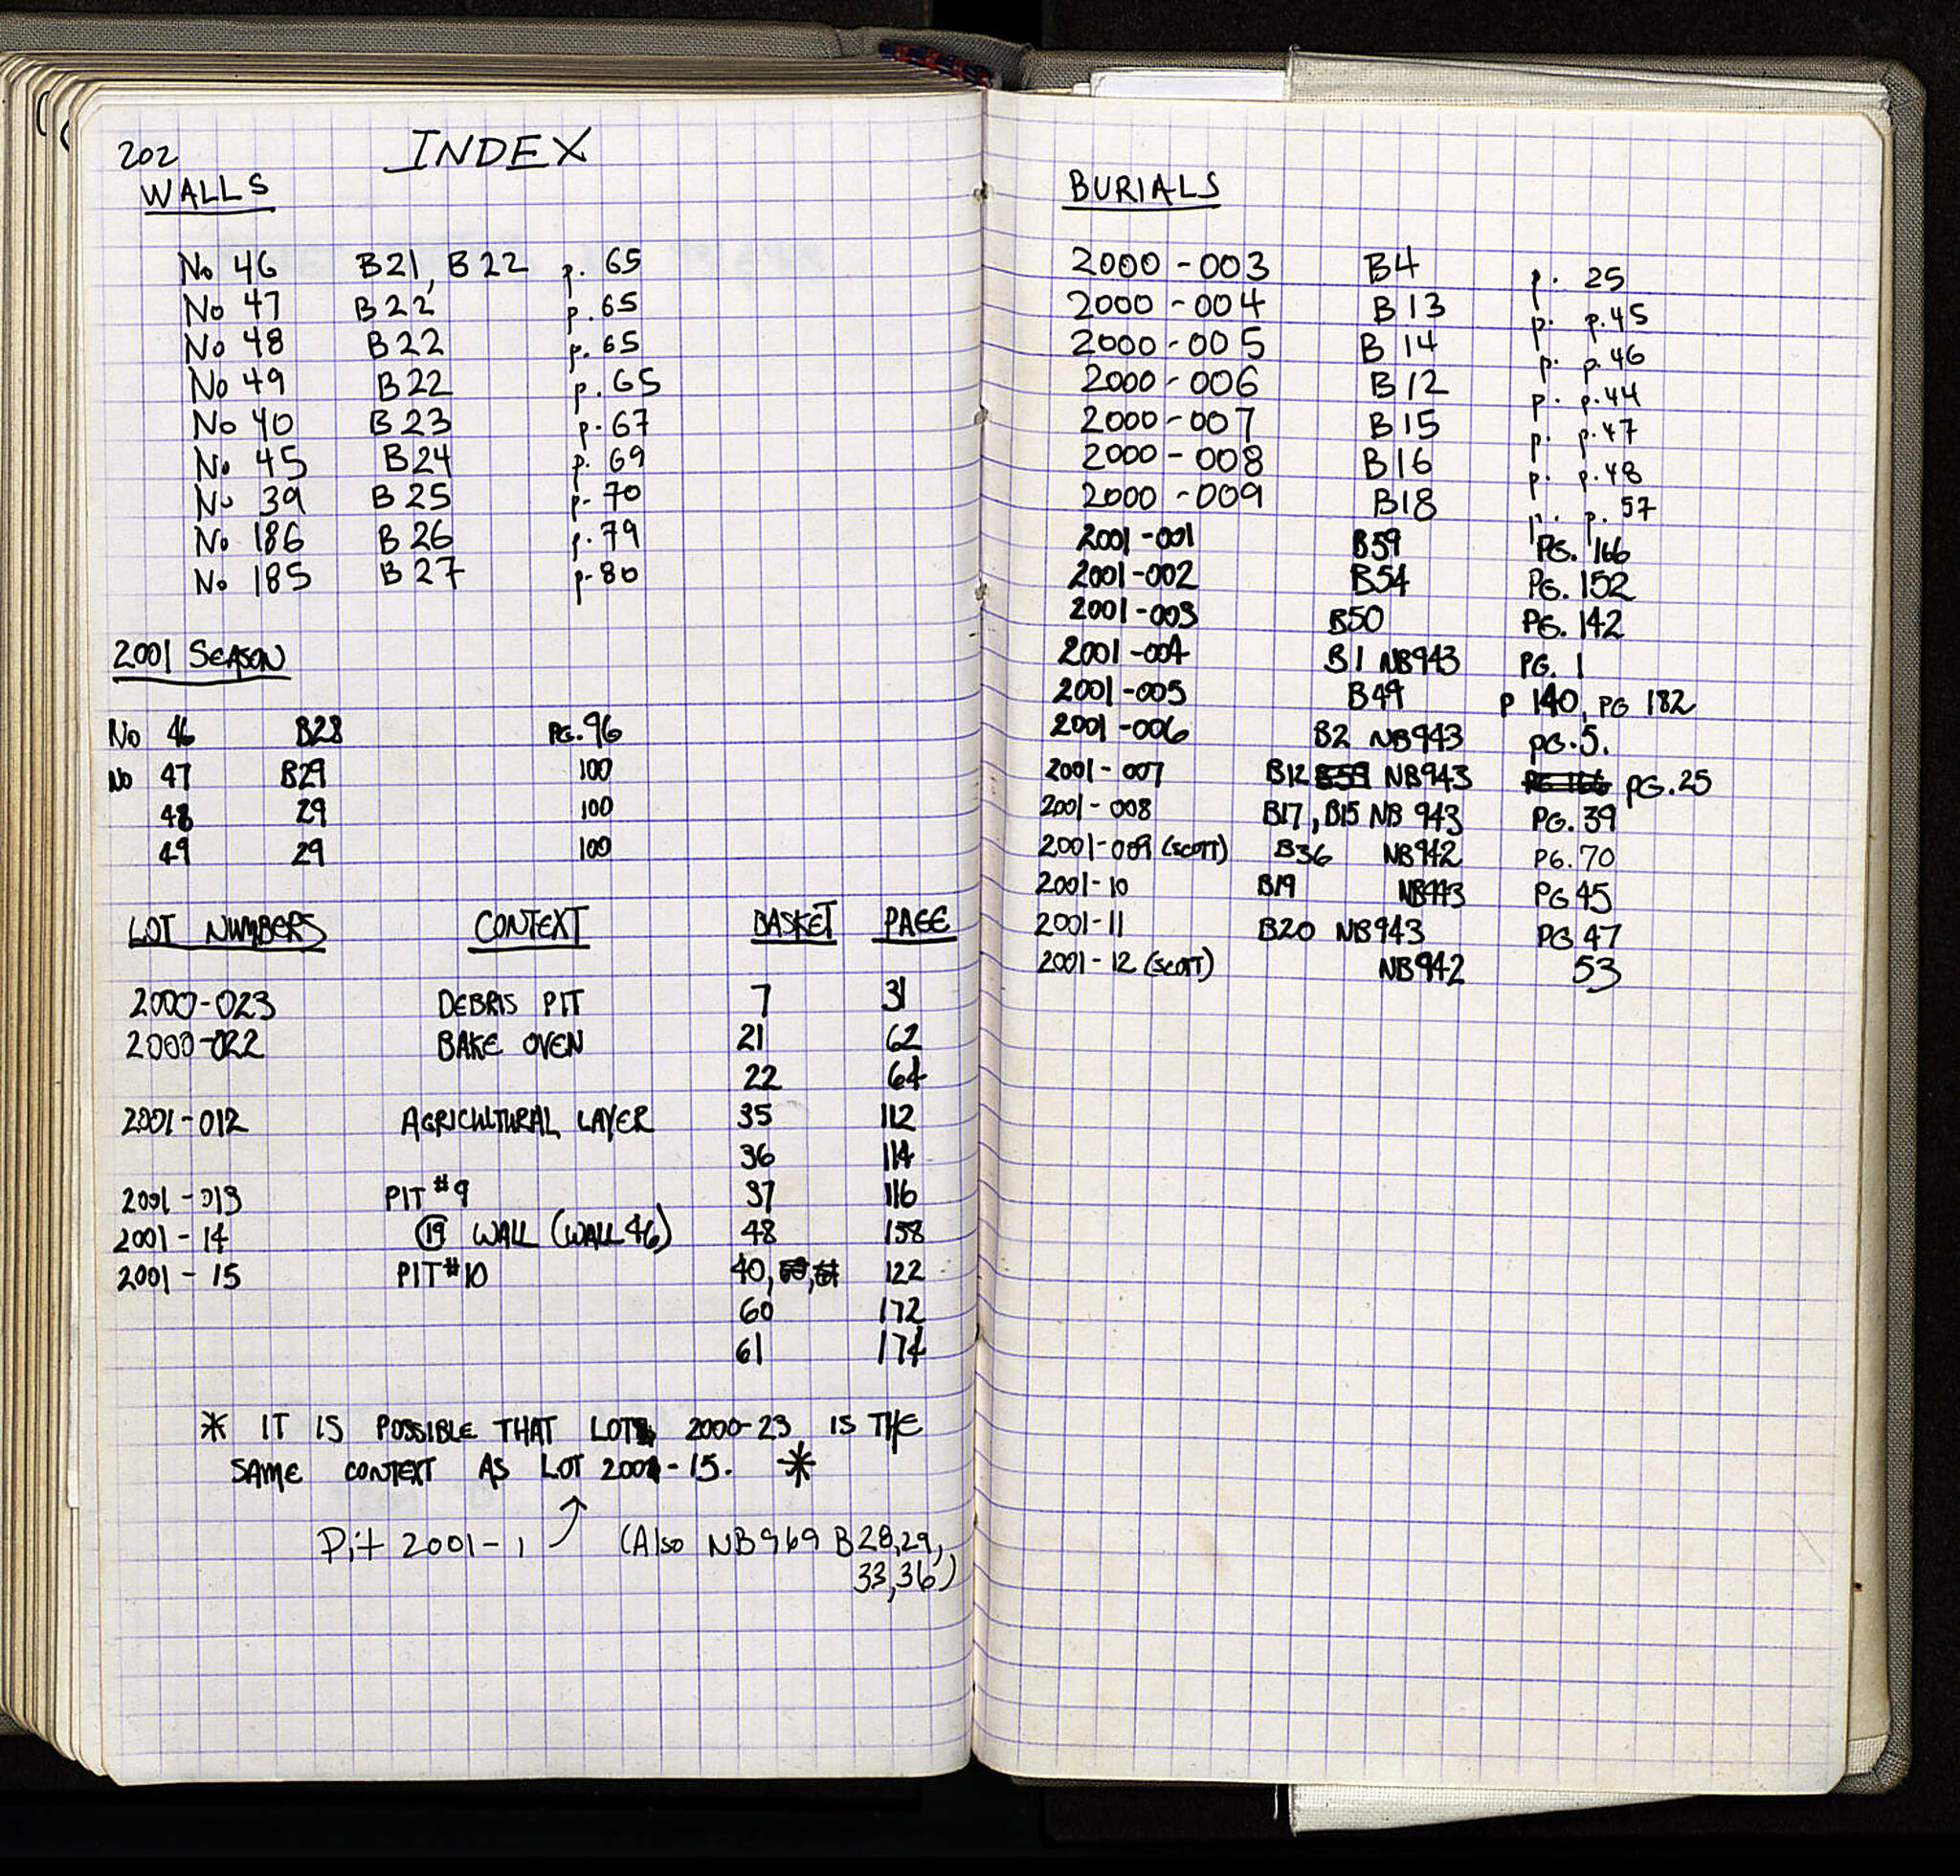 202 INDEX
WALLS
No 46 B21, B22 p. 65
No 47 B22 p. 65
No 48 B22 p. 65
No 49 B22 p. 65
No 40 B23 p. 67
No 45 B24 p. 69
No 39 B25 p. 70
No 186 B26 p. 79
No 185 B27 p. 80
2001 SEASON
No 46 B28 PG. 96
No 47 B29 100
48 29 100
49 29 100
LOT NUMBERS CONTEXT BASKET PAGE
2000-023 DEBRIS PIT 7 31
2000-022 BAKE OVEN 21 62
22 64
2001-012 AGRICULTURAL LAYER 35 112
36 114
2001-013 PIT #9 37 116
2001-14 19 WALL (WALL 46) 48 138
2001-15 PIT #10 40, 122
60 172
61 174
* IT IS POSSIBLE THAT LOT 2000-23 IS THE
SAME CONTEXT AS LOT 2001-15. *
Pit 2001-1 (Also NB969 B28,29,
33,36)
BURIALS
2000-003 B4 p. 25
2000-004 B13 p. p.45
2000-005 B14 p. p.46
2000-006 B12 p. p.44
2000-007 B15 p. p.47
2000-008 B16 p. p.48
2000-009 B18 p. p. 57
2001-001 B59 PG. 166
2001-002 B54 PG. 152
2001-003 B50 PG. 142
2001-004 B1 NB943 PG. 1
2001-005 B49 P 140, PG 182
2001-006 B2 NB943 PG.5.
2001-007 B12 B59 NB943 PG 166 PG.25
2001-008 B17, B15 NB 943 PG. 39
2001-009 (SCOTT) B36 NB942 PG. 70
2001-10 B19 NB943 PG 45
2001-11 B20 NB943 PG 47
2001-12 (SCOTT) NB942 53